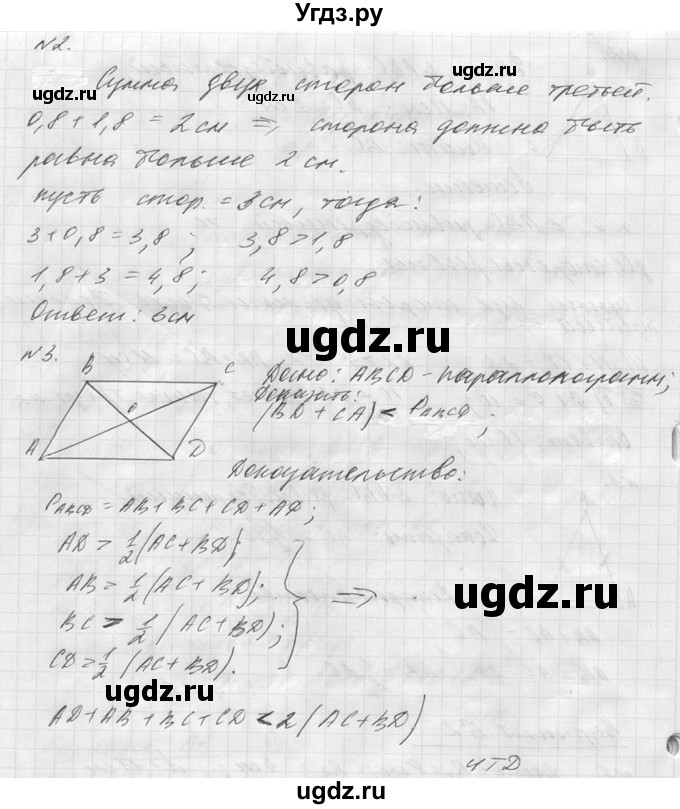 Угдз.ру
№2.
Сумма двух сторон больше третьей.
0,8 + 1,8 = 2 см ⇒, сторона должна быть
равна больше 2 см.
пусть стор. = 3 см, тогда:
3 + 0,8 = 3,8 ; 3,8 > 1,8
1,8 + 3 = 4,8 ; 4,8 > 0,8
Ответ: 3 см
№3.
B C
O
A D
Дано: ABCD - параллелограмм;
Доказать:
(BD + CA) < P ABCD ;
Доказательство:
P ABCD = AB + BC + CD + AD;
AD > 1/2 (AC + BD);
AB = 1/2 (AC + BD);
BC > 1/2 (AC + BD);
CD = 1/2 (AC + BD).
⇒
AD + AB + BC + CD < 2 (AC + BD)
ЧТД
ugdz.ru
ugdz.ru
ugdz.ru
ugdz.ru
ugdz.ru
ugdz.ru
ugdz.ru
ugdz.ru
Угдз.ру